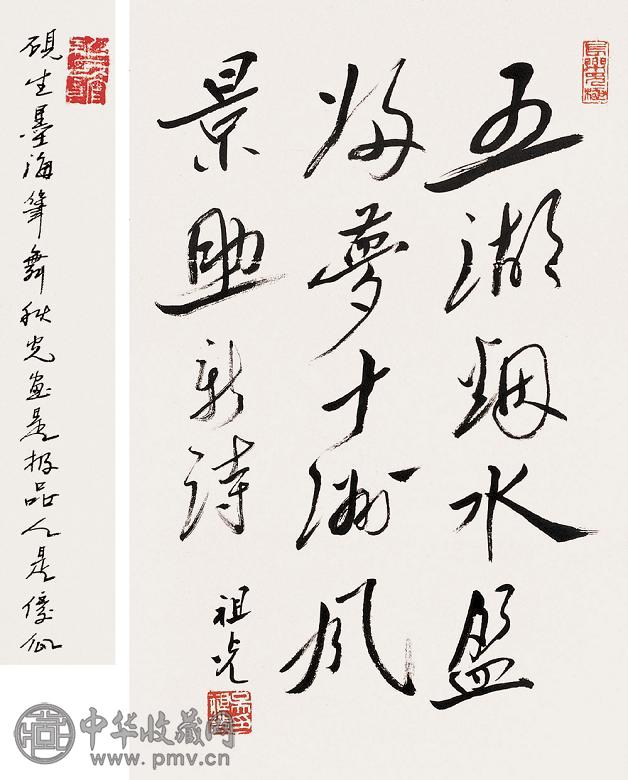 五湖烟水盈
归夢十洲风
景助新诗
祖光
砚生墨海筆舞秋光画是极品人是傻瓜
中华收藏网
www.pmv.cn